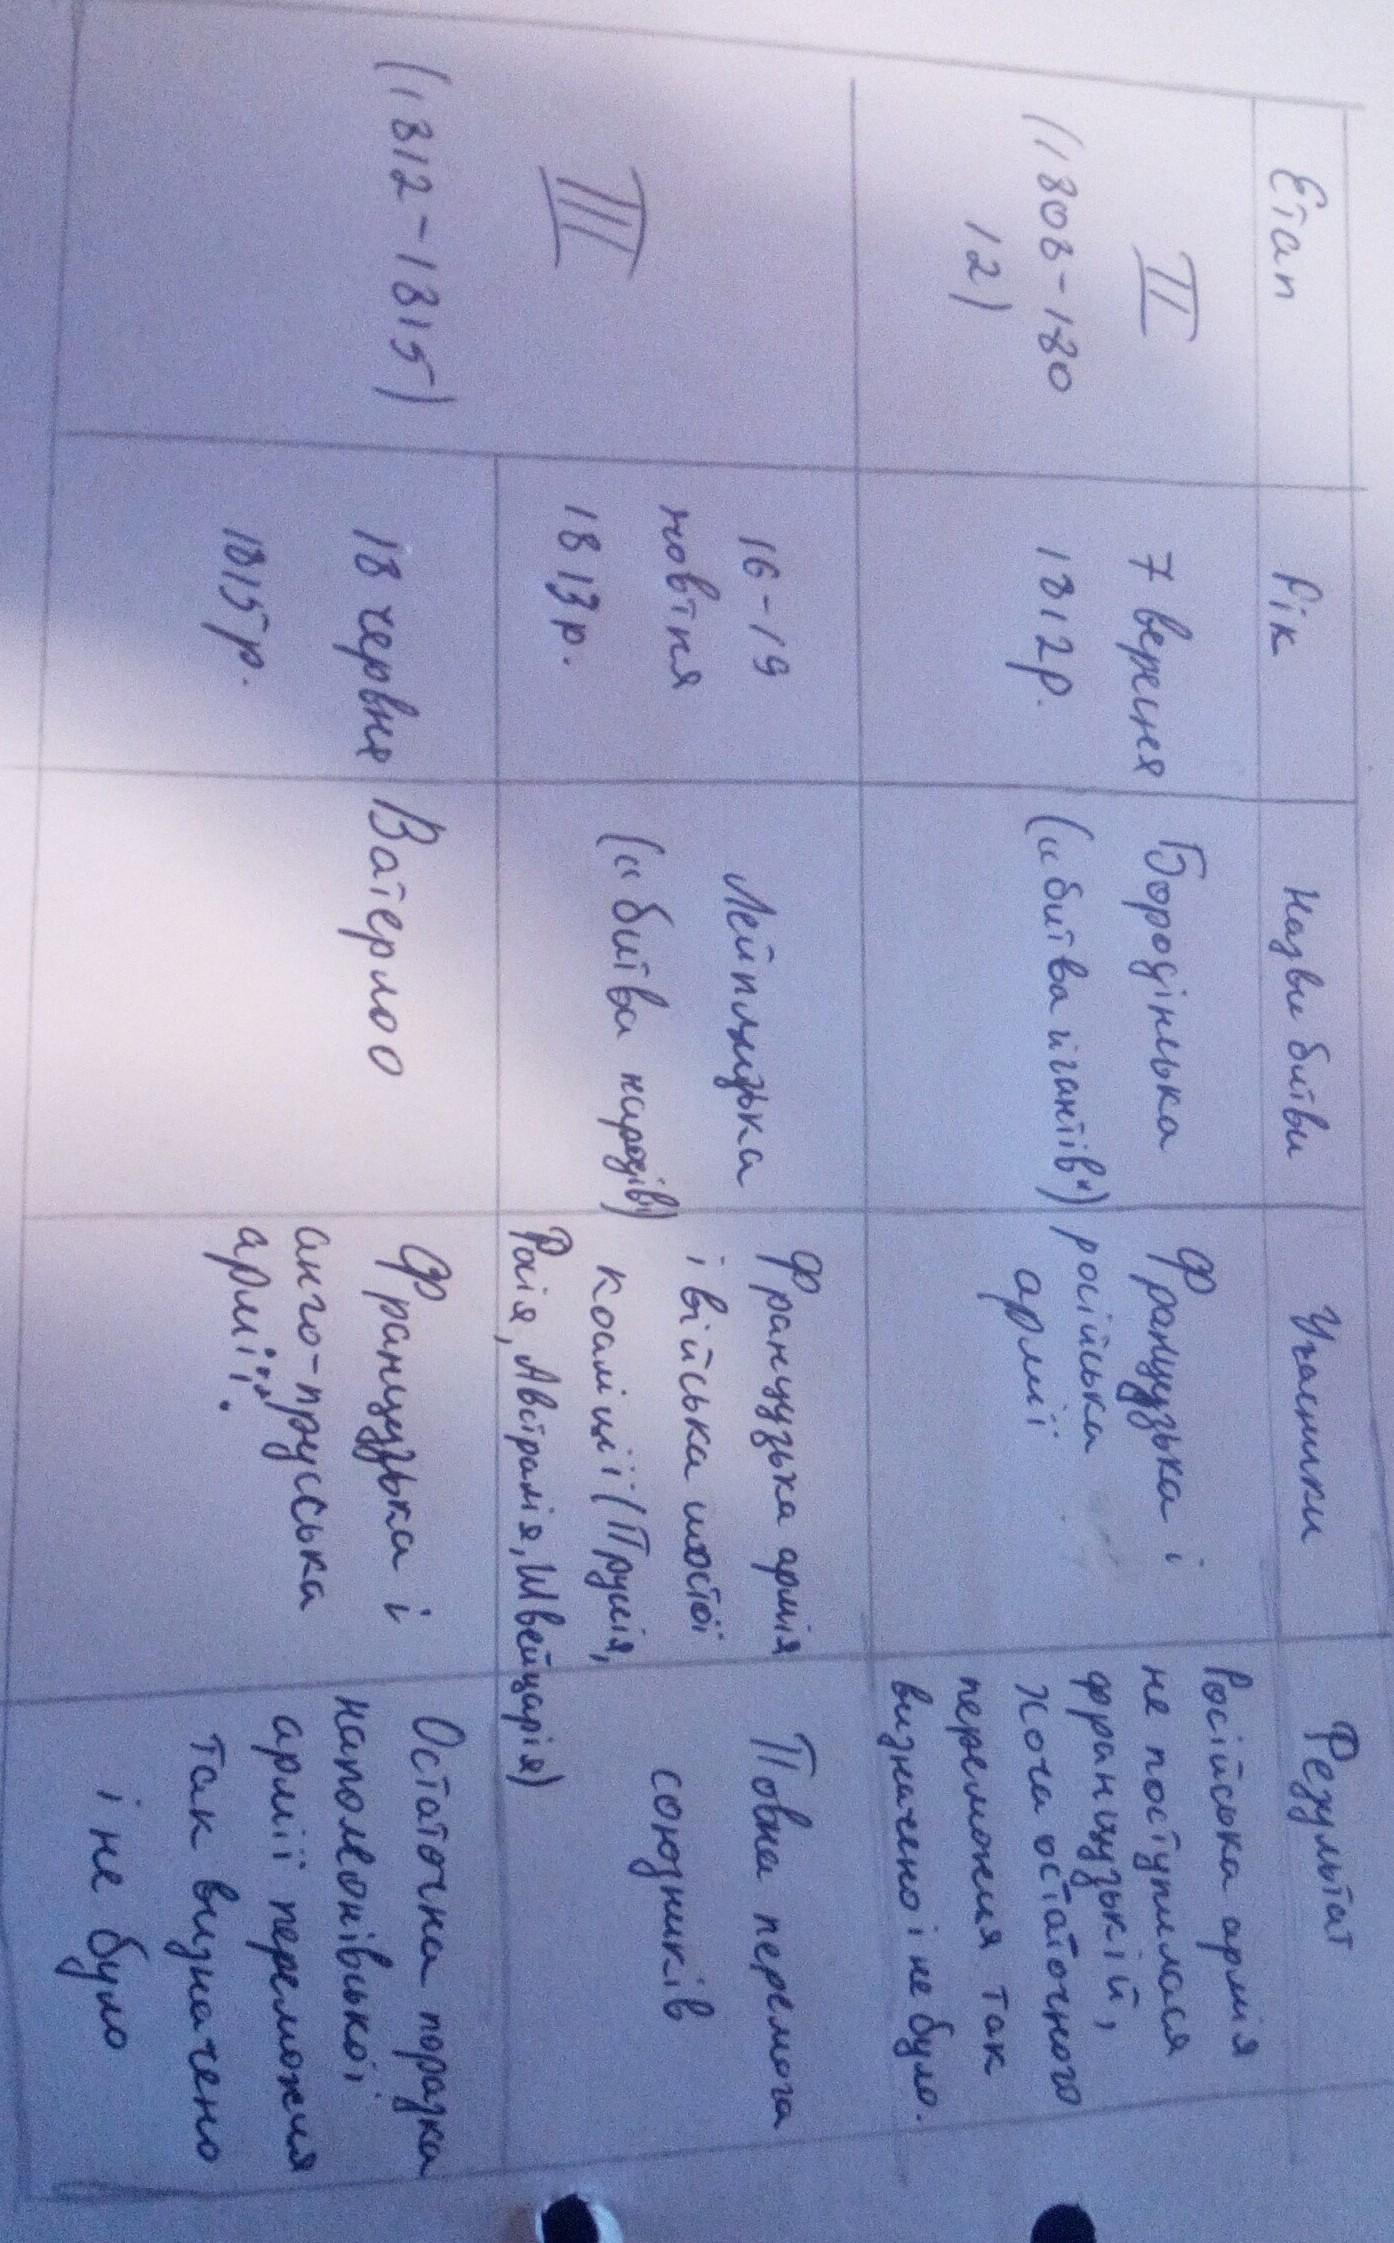 Етап
Рік
Назви битви
Учасники
Результат
II
(1803-180
12)
7 вересня
1812р.
Бородінська
("битва гігантів")
Французька і
російська
армії
Російська армія
не поступилася
французькій,
хоча остаточного
переможця так
визначено і не було.
III
(1812-1815)
16-19
жовтня
1813р.
Лейпцизька
("битва народів")
Французька армія
і війська шостої
коаліції (Пруссія,
Росія, Австралія, Швейцарія)
Повна перемога
союзників
18 червня
1815р.
Ватерлоо
Французька і
анго-пруська
армії.
Остаточна поразка
наполеонівської
армії переможця
так визначено
і не було